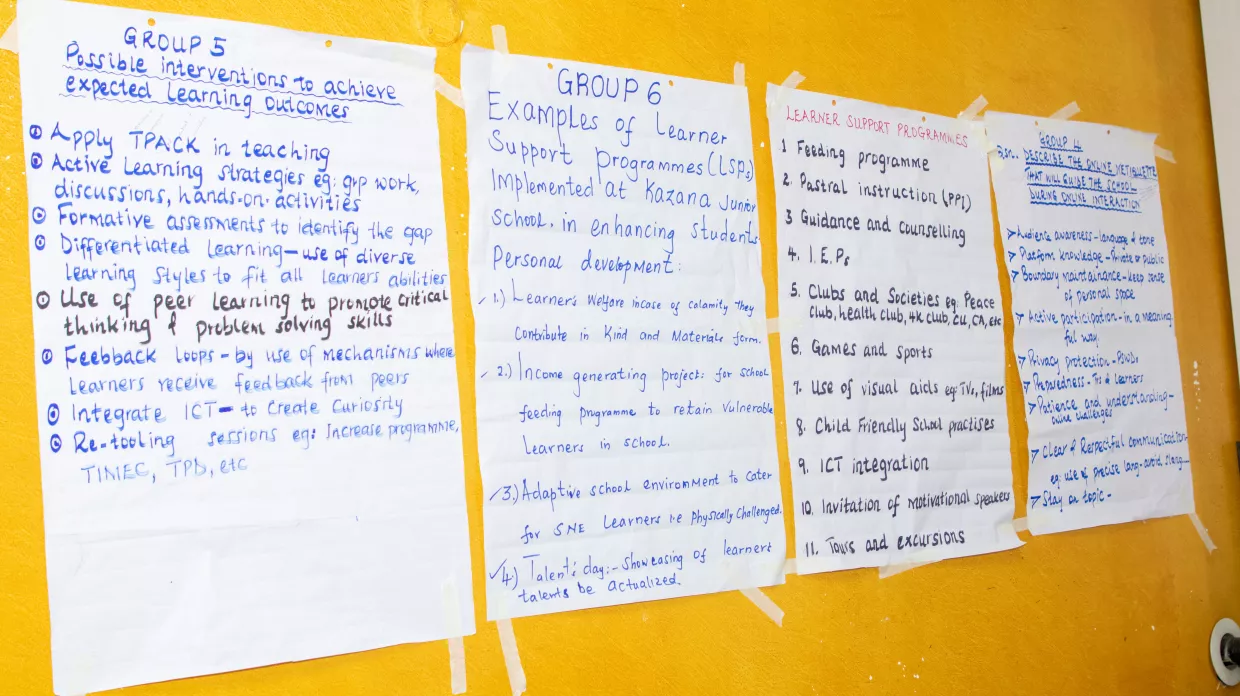 GROUP 5
Possible interventions to achieve
expected Learning outcomes
Apply TPACK in teaching
Active Learning strategies eg: grp work,
discussions, hands-on activities
Formative assessments to identify the gap
Differentiated Learning – use of diverse
learning styles to fit all learners abilities
Use of peer learning to promote critical
thinking & problem solving skills
Feebback loops – by use of mechanisms where
Learners receive feedback from peers
Integrate ICT – to Create Curiosity
Re-tooling sessions eg: Increase programme,
TPD, etc
GROUP 6
Examples of Learner
Support programmes (LSPs)
Implemented at Kazana Junior
School, in enhancing students
Personal development:
1.) Learners Welfare incase of calamity they
Contribute in Kind and Materials form.
2.) Income generating project: for school
feeding programme to retain Vulnerable
Learners in school.
3.) Adaptive school environment to cater
for SNE Learners i.e Physically Challenged.
4.) Talent's day:- Showcasing of learners
talents be actualized.
LEARNER SUPPORT PROGRAMMES
1 Feeding programme
2. Pastral instruction (PPI)
3 Guidance and counselling
4. I.E.Ps
5. Clubs and Societies eg: Peace
club, health club, 4K club, CU, CA, etc
6. Games and sports
7. Use of visual aids eg: TVs, films
8. Child Friendly School practises
9. ICT integration
10. Invitation of motivational speakers
11. Tours and excursions
GROUP 4
DESCRIBE THE ONLINE NETIQUETTE
THAT WILL GUIDE THE SCHOOL
DURING ONLINE INTERACTION
Audience awareness – language & tone
Platform knowledge – Private or public
Boundary maintainance – keep sense
of personal space
Active participation – in a meaning
ful way.
Privacy protection –
Preparedness – Trs & Learners
Patience and understanding –
online challenges
Clear & Respectful communication
eg: use of precise lang – avoid slang
Stay on topic -